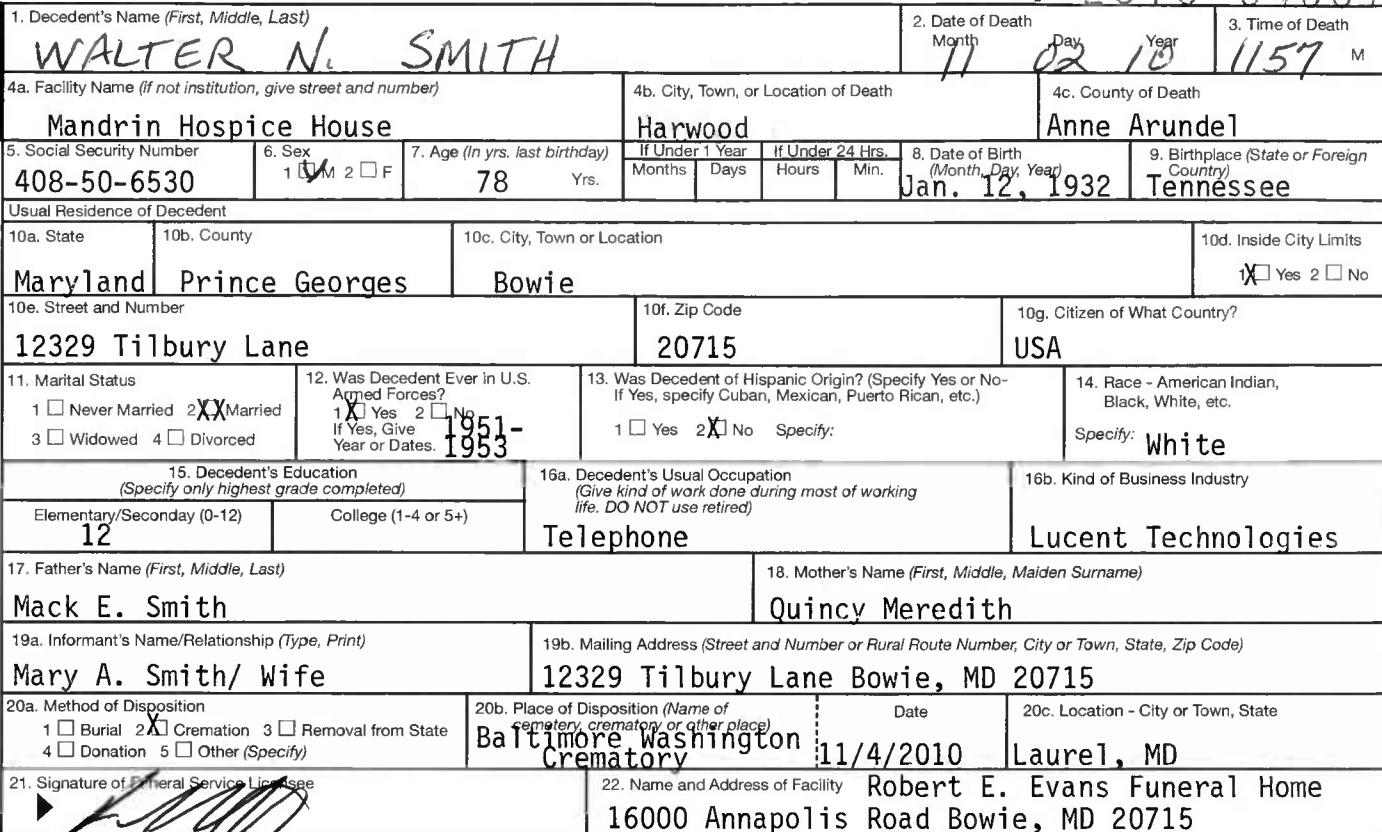 1. Decedent's Name (First, Middle, Last)
WALTER N. SMITH
2. Date of Death
Month Day Year
11 02 10
3. Time of Death
1157 M
4a. Facility Name (if not institution, give street and number)
Mandrin Hospice House
4b. City, Town, or Location of Death
Harwood
4c. County of Death
Anne Arundel
5. Social Security Number
408-50-6530
6. Sex
1 ☑ M 2 ☐ F
7. Age (In yrs. last birthday)
78 Yrs.
If Under 1 Year
Months Days
If Under 24 Hrs.
Hours Min.
8. Date of Birth
(Month, Day, Year)
Jan. 12, 1932
9. Birthplace (State or Foreign
Country)
Tennessee
Usual Residence of Decedent
10a. State
Maryland
10b. County
Prince Georges
10c. City, Town or Location
Bowie
10d. Inside City Limits
1 ☒ Yes 2 ☐ No
10e. Street and Number
12329 Tilbury Lane
10f. Zip Code
20715
10g. Citizen of What Country?
USA
11. Marital Status
1 ☐ Never Married 2 XX Married
3 ☐ Widowed 4 ☐ Divorced
12. Was Decedent Ever in U.S.
Armed Forces?
1 ☒ Yes 2 ☐ No
If Yes, Give 1951-
Year or Dates. 1953
13. Was Decedent of Hispanic Origin? (Specify Yes or No-
If Yes, specify Cuban, Mexican, Puerto Rican, etc.)
1 ☐ Yes 2 ☒ No Specify:
14. Race - American Indian,
Black, White, etc.
Specify: White
15. Decedent's Education
(Specify only highest grade completed)
Elementary/Seconday (0-12)
12
College (1-4 or 5+)
16a. Decedent's Usual Occupation
(Give kind of work done during most of working
life. DO NOT use retired)
Telephone
16b. Kind of Business Industry
Lucent Technologies
17. Father's Name (First, Middle, Last)
Mack E. Smith
18. Mother's Name (First, Middle, Maiden Surname)
Quincy Meredith
19a. Informant's Name/Relationship (Type, Print)
Mary A. Smith/ Wife
19b. Mailing Address (Street and Number or Rural Route Number, City or Town, State, Zip Code)
12329 Tilbury Lane Bowie, MD 20715
20a. Method of Disposition
1 ☐ Burial 2 ☒ Cremation 3 ☐ Removal from State
4 ☐ Donation 5 ☐ Other (Specify)
20b. Place of Disposition (Name of
cemetery, crematory or other place)
Baltimore Washington
Crematory
Date
11/4/2010
20c. Location - City or Town, State
Laurel, MD
21. Signature of Funeral Service Licensee
22. Name and Address of Facility Robert E. Evans Funeral Home
16000 Annapolis Road Bowie, MD 20715